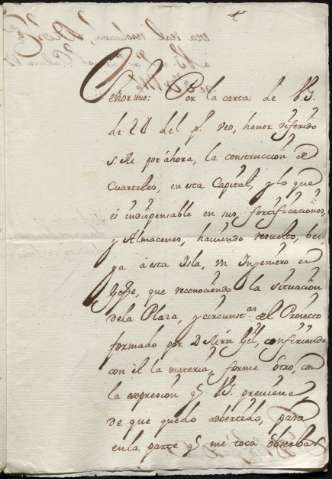 Señor mio: Por la carta de V.S.
de 20 del p.º veo, haver diferido
S.M. por ahora, la construccion de
Cuarteles, en esta Capital, y lo que
es indispensable en sus, fortificaciones
y Almacenes, haviendo resuelto, ben
ga à esta Isla, un Ingeniero en
Gefe, que reconociendo la situacion
de la Plaza, y circunst.as del Proyecto
formado por D. Gil, confiriendo
con èl la materia, forme otro, con
la expresion q.e V.S. previene
de que quedo advertido, para
en la parte q.e me toca observar